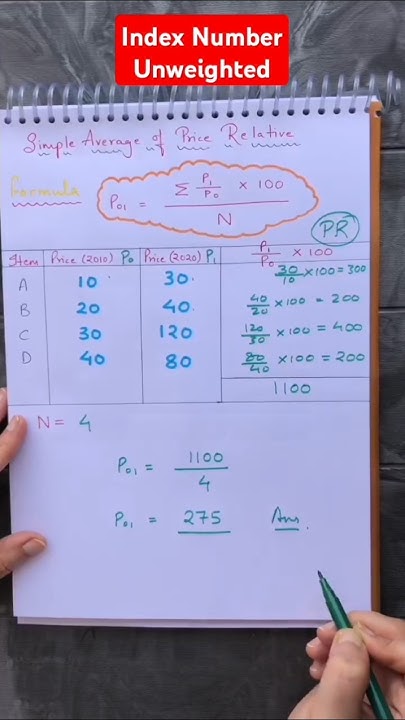 Index Number
Unweighted
Simple Average of Price Relative
Formula
P01 = Σ P1/P0 × 100 / N
PR
Item Price (2010) P0 Price (2020) P1 P1/P0 × 100
A 10 30 30/10 × 100 = 300
B 20 40 40/20 × 100 = 200
C 30 120 120/30 × 100 = 400
D 40 80 80/40 × 100 = 200
1100
N = 4
P01 = 1100/4
P01 = 275 Ans.